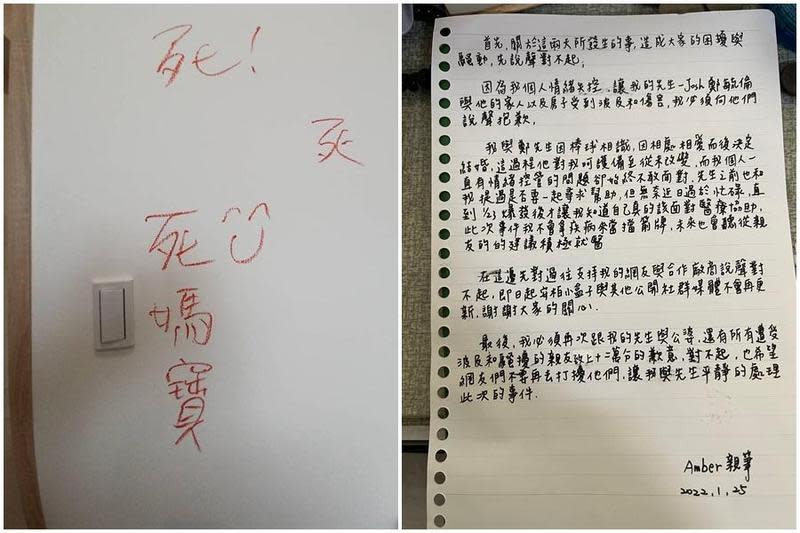 死!
死
死
媽
寶
首先,關於這兩天所發生的事,造成大家的困擾與
騷動,先說聲對不起。
因為我個人情緒失控,讓我的先生-Josh 鄭毓倫
與他的家人以及房子受到波及和傷害,我必須向他們
說聲抱歉。
我與鄭先生因棒球相識,因相處相愛而後決定
結婚,這過程他對我呵護備至從未改變,而我個人一
直有情緒控管的問題卻始終不敢面對,先生之前也和
我提過是否要一起尋求幫助,但無奈近日過於忙碌,直
到1/23爆發後才讓我知道自己真的該面對醫療協助,
此次事件我不會拿疾病來當擋箭牌,未來也會聽從親
友的的建議積極就醫
在這邊先對過往支持我的網友與合作廠商說聲對
不起,即日起安柏小盒子與其他公開社群媒體不會再更
新,謝謝大家的關心.
最後,我必須再次跟我的先生與公婆,還有所有遭受
波及和騷擾的親友致上十二萬分的歉意,對不起,也希望
網友們不要再去打擾他們,讓我與先生平靜的處理
此次的事件.
Amber 親筆
2022.1.25